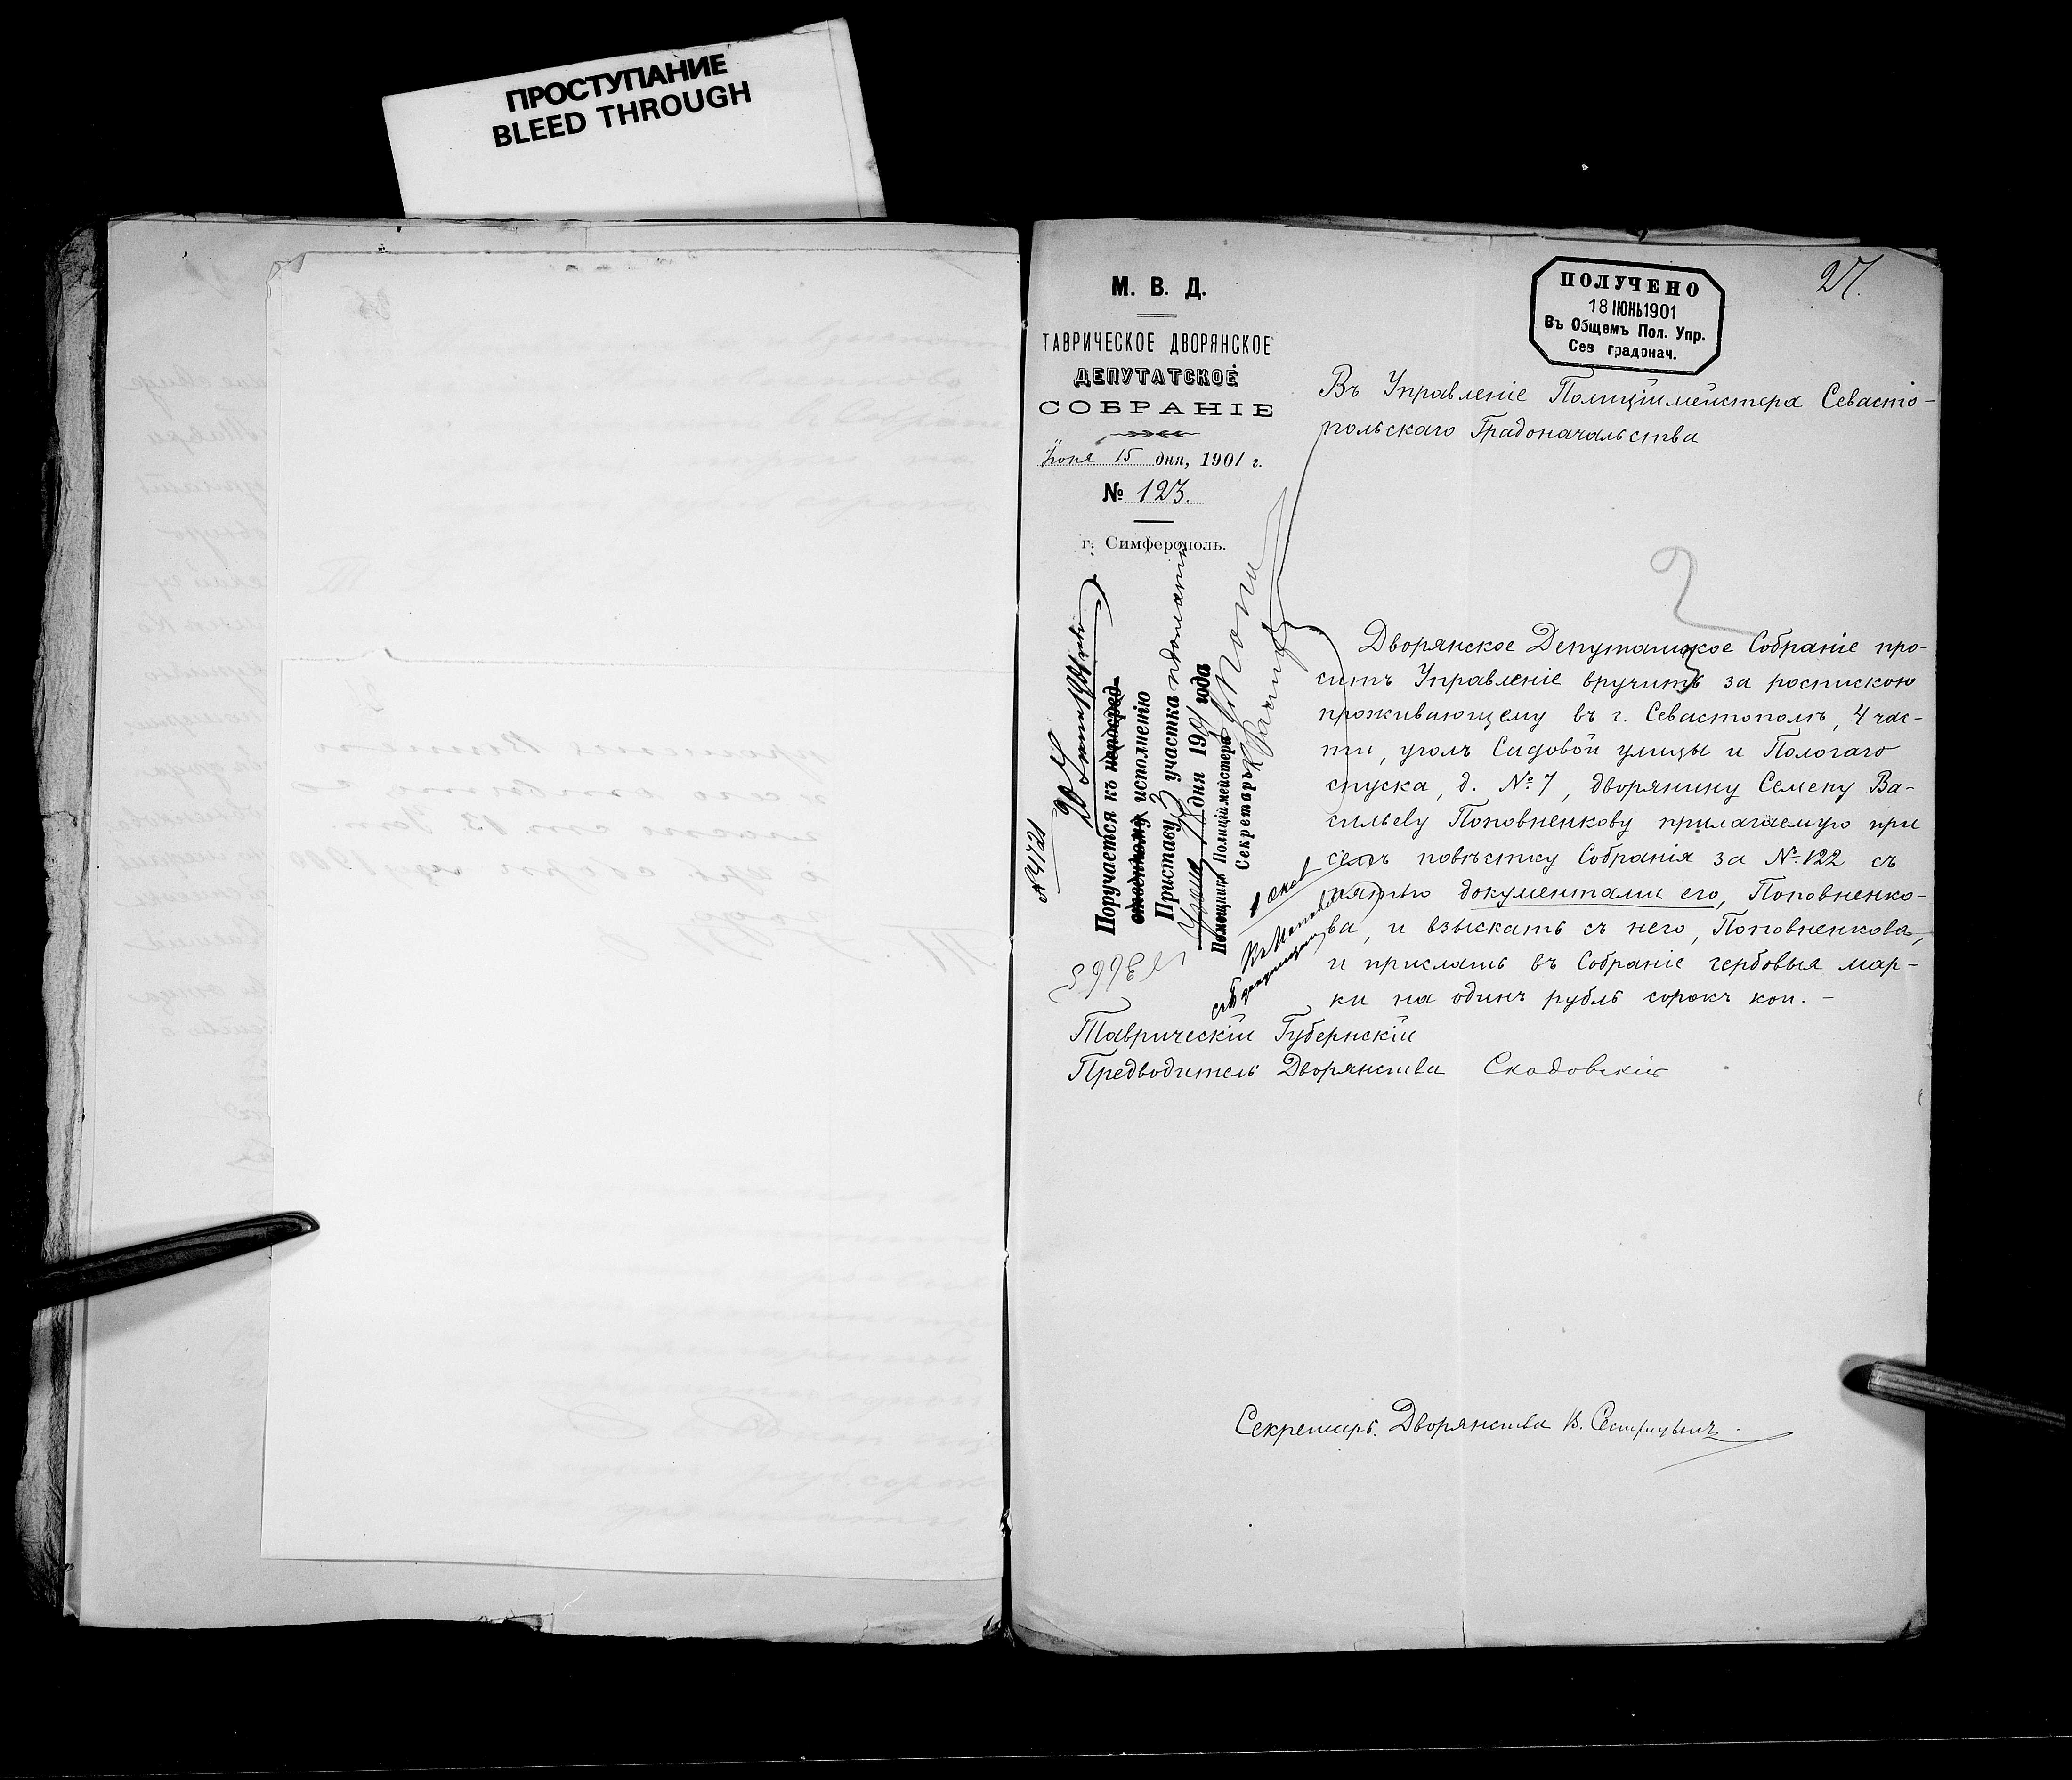 ПРОСТУПАНИЕ
BLEED THROUGH
М. В. Д.
ТАВРИЧЕСКОЕ ДВОРЯНСКОЕ
ДЕПУТАТСКОЕ
СОБРАНІЕ
Іюня 15 дня, 1901 г.
№ 123.
г. Симферополь.
ПОЛУЧЕНО
18 ІЮНЬ 1901
Въ Общемъ Пол. Упр.
Сев градонач.
27.
Въ Управленіе Полиціймейстера Севасто-
польскаго Градоначальства
2
Дворянское Депутатское Собраніе про-
ситъ Управленіе вручить за роспискою
проживающему въ г. Севастополѣ, 4 час-
ти, уголъ Садовой улицы и Пологаго
спуска, д. № 7, дворянину Семену Ва-
сильеву Поповненкову прилагаемую при
семъ повѣстку Собранія за № 122 съ
пятью документами его, Поповненко-
ва, и взыскать съ него, Поповненкова,
и прислать въ Собраніе гербовыя мар-
ки на одинъ рубль сорокъ коп. -
Таврическій Губернскій
Предводитель Дворянства Скадовскій
Секретарь Дворянства
№ 4721
Поручается къ неперед-
отоенкому исполненію
Приставу 3 участка
18 дня 1901 года
Помощникъ Полиціймейстера
Секретарь